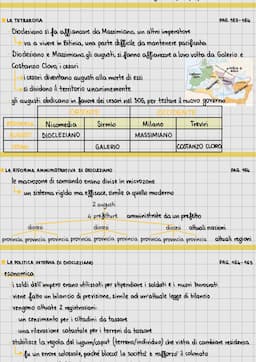 LA TETRARCHIA PAG. 163-164
Diocleziano si fa affiancare da Massimiano, un altro imperatore
va a vivere in Bitinia, una parte difficile da mantenere pacificata
Diocleziano e Massimiano, gli augusti, si fanno affiancare a loro volta da Galerio e
Costanzo Cloro, i cesari
i cesari diventano augusti alla morte di essi
si dividono il territorio unanimemente
gli augusti abdicano in favore dei cesari nel 305, per testare il nuovo governo
ORIENTE OCCIDENTE
Nicomedia Sirmio Milano Treviri
AUGUSTI DIOCLEZIANO MASSIMIANO
CESARI GALERIO COSTANZO CLORO
LA RIFORMA AMMINISTRATIVA DI DIOCLEZIANO PAG. 164
le macrozone di comando erano divise in microzone
un sistema rigido ma efficace, simile a quello moderno
2 augusti
4 prefetture amministrate da un prefetto
diocesi diocesi diocesi attuali nazioni
provincia, provincia, provincia, provincia, provincia, provincia, provincia attuali regioni
LA POLITICA INTERNA DI DIOCLEZIANO PAG. 164-165
economica
i soldi dell'impero erano utilizzati per stipendiare i soldati e i nuovi burocrati
viene fatto un bilancio di previsione, simile ad un'attuale legge di bilancio
vengono attuate 2 registrazioni:
un censimento per i cittadini da tassare
una rilevazione catastale per i terreni da tassare
stabilisce la regola del iugum/caput (terreno/individuo) che vieta di cambiare residenza
fu un errore colossale, poiché bloccò la società e rafforzò il colonato